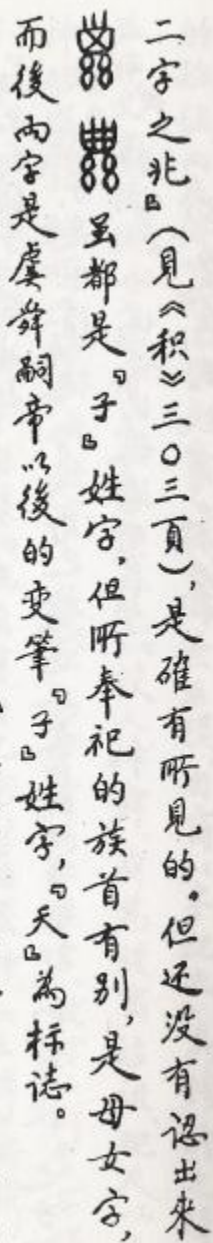 二字之非』(見《积》三〇三頁),是確有所見的。但还没有認出来
虽都是『子』姓字,但所奉祀的族首有别,是母女字,
而後两字是虞舜嗣帝以後的变筆『子』姓字,『天』為标誌。